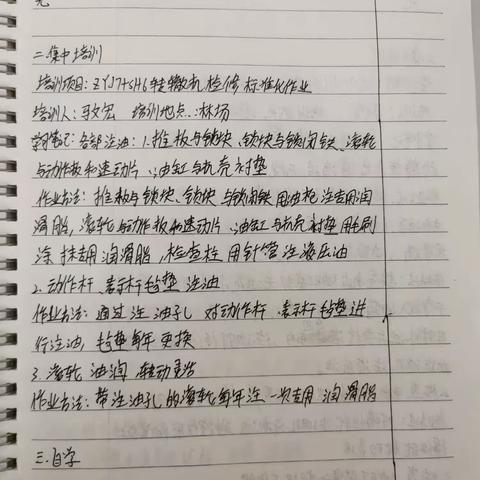 二.集中培训
培训项目:ZYJ7+SH6转辙机检修标准化作业
培训人:马文宏 培训地点:林场
学习笔记:各部注油:1.推板与锁块、锁块与锁闭铁、滚轮
与动作板和速动片、油缸与机壳衬垫
作业方法:推板与锁块、锁块与锁闭铁用油枪注专用润
滑脂,滚轮与动作板和速动片、油缸与机壳衬垫用毛刷
涂抹专用润滑脂,检查栓用针管注液压油
2.动作杆、表示杆毡垫注油
作业方法:通过注油孔对动作杆、表示杆毡垫进
行注油,毡垫每年更换
3.滚轮油润、转动灵活
作业方法:带注油孔的滚轮每年注一次专用润滑脂
三.自学